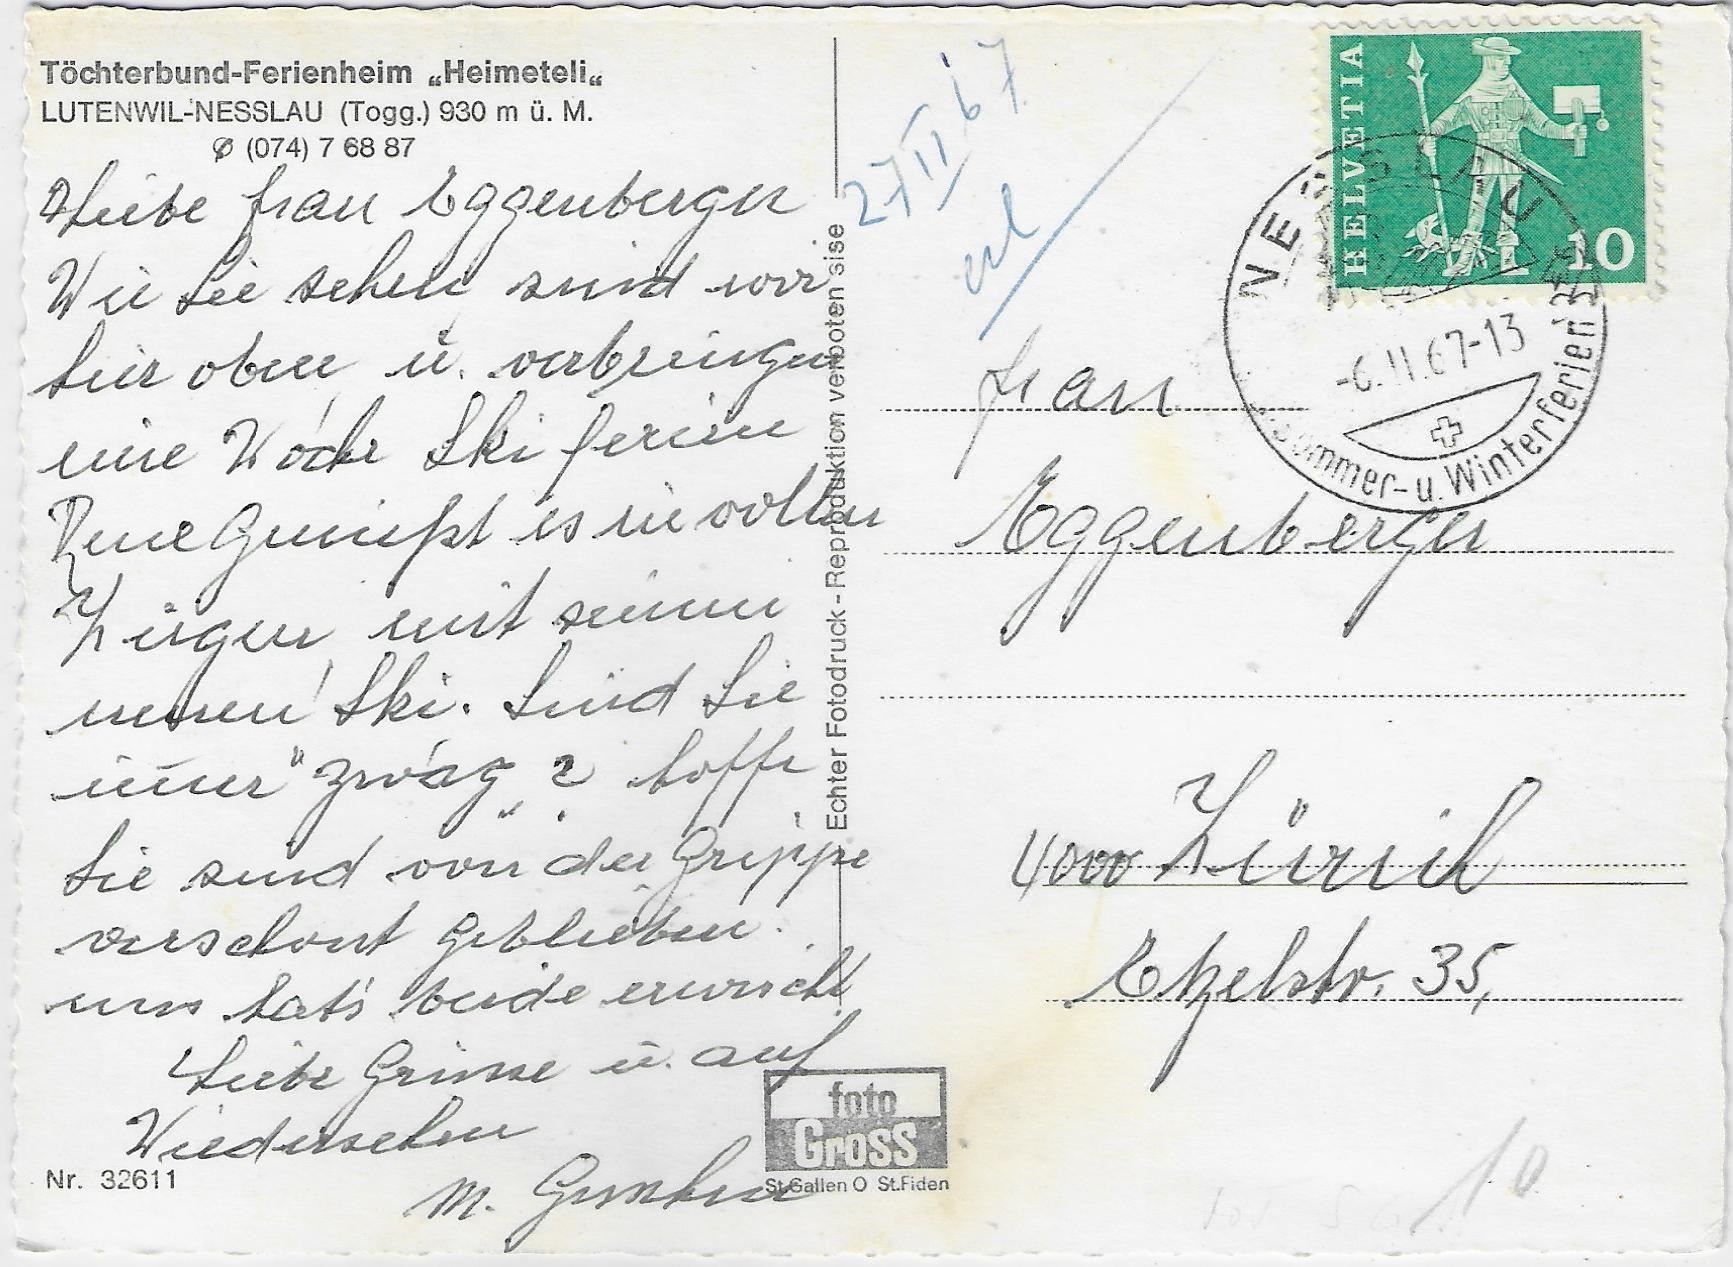 Töchterbund-Ferienheim „Heimeteli“
LUTENWIL-NESSLAU (Togg.) 930 m ü. M.
(074) 7 68 87
Liebe Frau Eggenberger
Wie Sie sehen sind wir
hier oben u. verbringen
eine Woche Ski ferien
Rene Geniesst es in vollen
Zügen mit seinen
neuen Ski. Sind Sie
imer "zwäg" ? hoffe
Sie sind von der Grippe
verschont geblieben.
uns hat's beide erwischt
Liebe Grüsse u. auf
Wiedersehen
M.
Nr. 32611
Echter Fotodruck - Reproduktion verboten sise
foto
Gross
St.Gallen O St.Fiden
27 II 67
erl
HELVETIA
10
NESSLAU
-6.II.67-13
Sommer- u. Winterferien
Frau
Eggenberger
4000 Zürich
Etzelstr. 35,
10